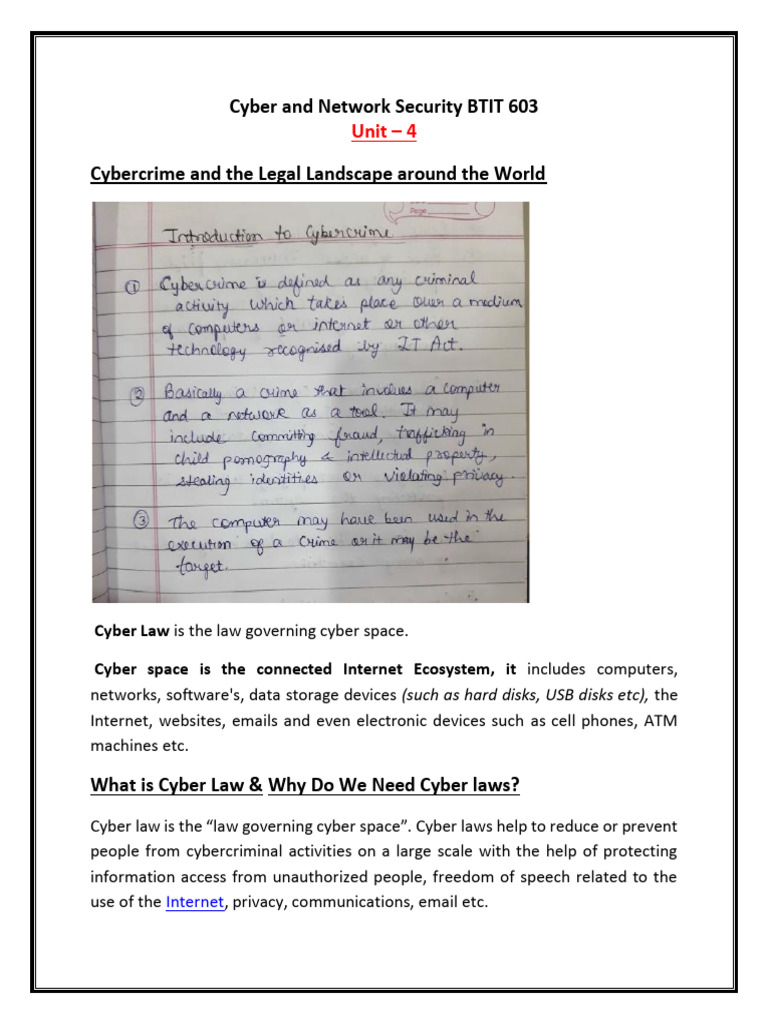 Cyber and Network Security BTIT 603
Unit – 4
Cybercrime and the Legal Landscape around the World
Page
Introduction to Cybercrime
① Cybercrime is defined as any criminal
activity which takes place over a medium
of computers or internet or other
technology recognised by IT Act.
② Basically a crime that involves a computer
and a network as a tool. It may
include committing fraud, trafficking in
child pornography & intellectual property,
stealing identities or violating privacy.
③ The computer may have been used in the
execution of a crime or it may be the
target.
Cyber Law is the law governing cyber space.
Cyber space is the connected Internet Ecosystem, it includes computers,
networks, software's, data storage devices (such as hard disks, USB disks etc), the
Internet, websites, emails and even electronic devices such as cell phones, ATM
machines etc.
What is Cyber Law & Why Do We Need Cyber laws?
Cyber law is the “law governing cyber space”. Cyber laws help to reduce or prevent
people from cybercriminal activities on a large scale with the help of protecting
information access from unauthorized people, freedom of speech related to the
use of the Internet, privacy, communications, email etc.